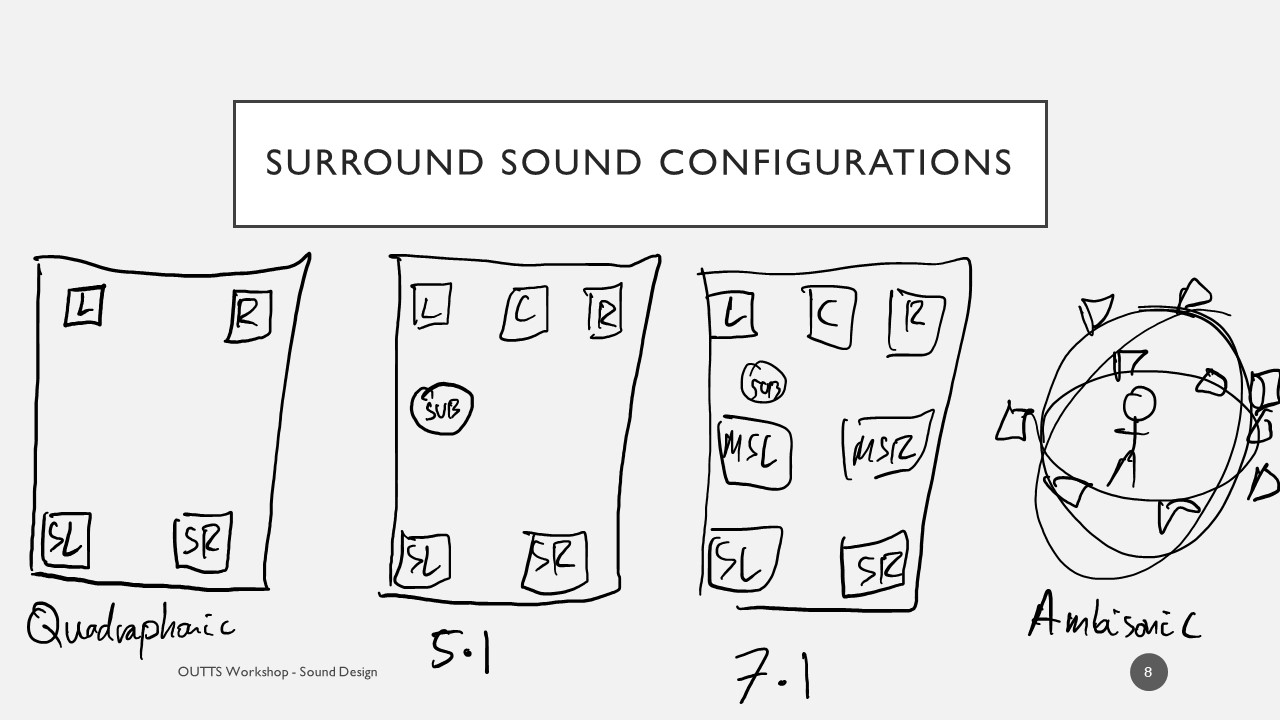 SURROUND SOUND CONFIGURATIONS
L R
SL SR
Quadraphonic
L C R
SUB
SL SR
5.1
L C R
SUB
MSL MSR
SL SR
7.1
Ambisonic
OUTTS Workshop - Sound Design
8